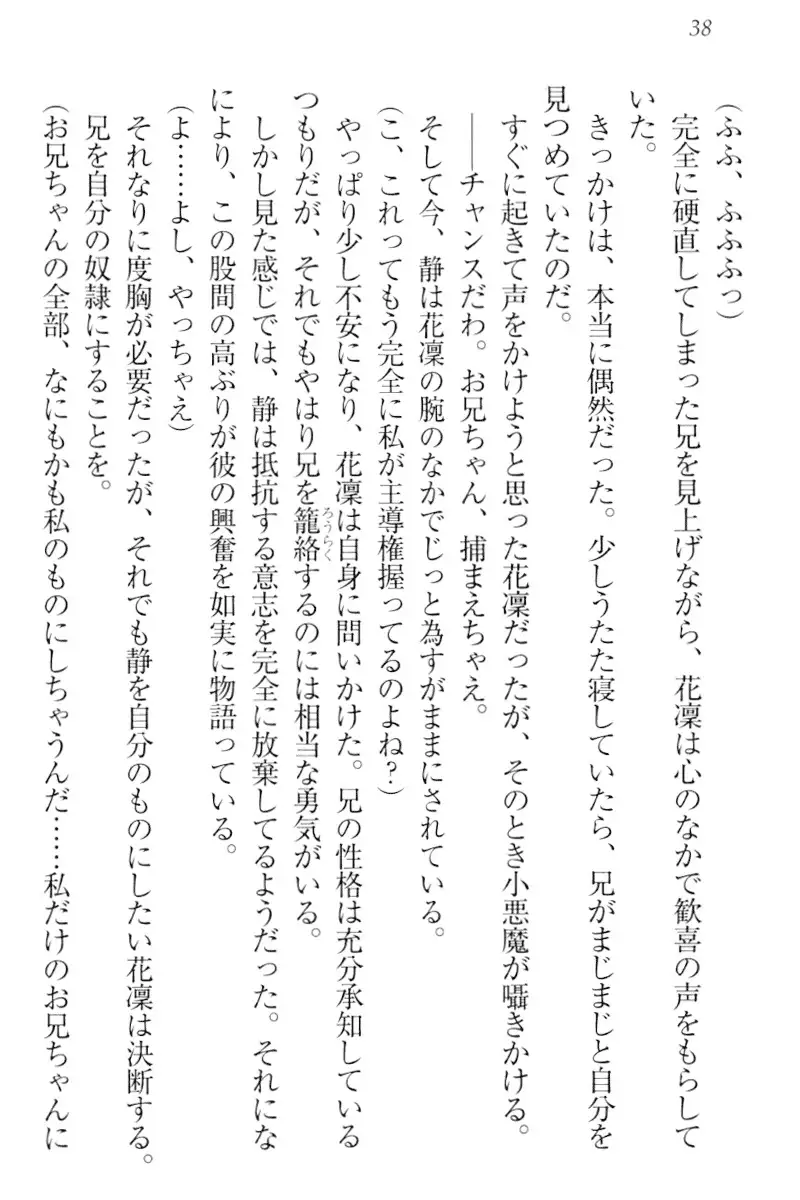 38
(ふふ、ふふふっ)
完全に硬直してしまった兄を見上げながら、花凜は心のなかで歓喜の声をもらして
いた。
きっかけは、本当に偶然だった。少しうたた寝していたら、兄がまじまじと自分を
見つめていたのだ。
すぐに起きて声をかけようと思った花凜だったが、そのとき小悪魔が囁きかける。
——チャンスだわ。お兄ちゃん、捕まえちゃえ。
そして今、静は花凜の腕のなかでじっと為すがままにされている。
(こ、これってもう完全に私が主導権握ってるのよね?)
やっぱり少し不安になり、花凜は自身に問いかけた。兄の性格は充分承知している
つもりだが、それでもやはり兄を籠絡するのには相当な勇気がいる。
ろうらく
しかし見た感じでは、静は抵抗する意志を完全に放棄してるようだった。それにな
により、この股間の高ぶりが彼の興奮を如実に物語っている。
(よ……よし、やっちゃえ)
それなりに度胸が必要だったが、それでも静を自分のものにしたい花凜は決断する。
兄を自分の奴隷にすることを。
(お兄ちゃんの全部、なにもかも私のものにしちゃうんだ……私だけのお兄ちゃんに